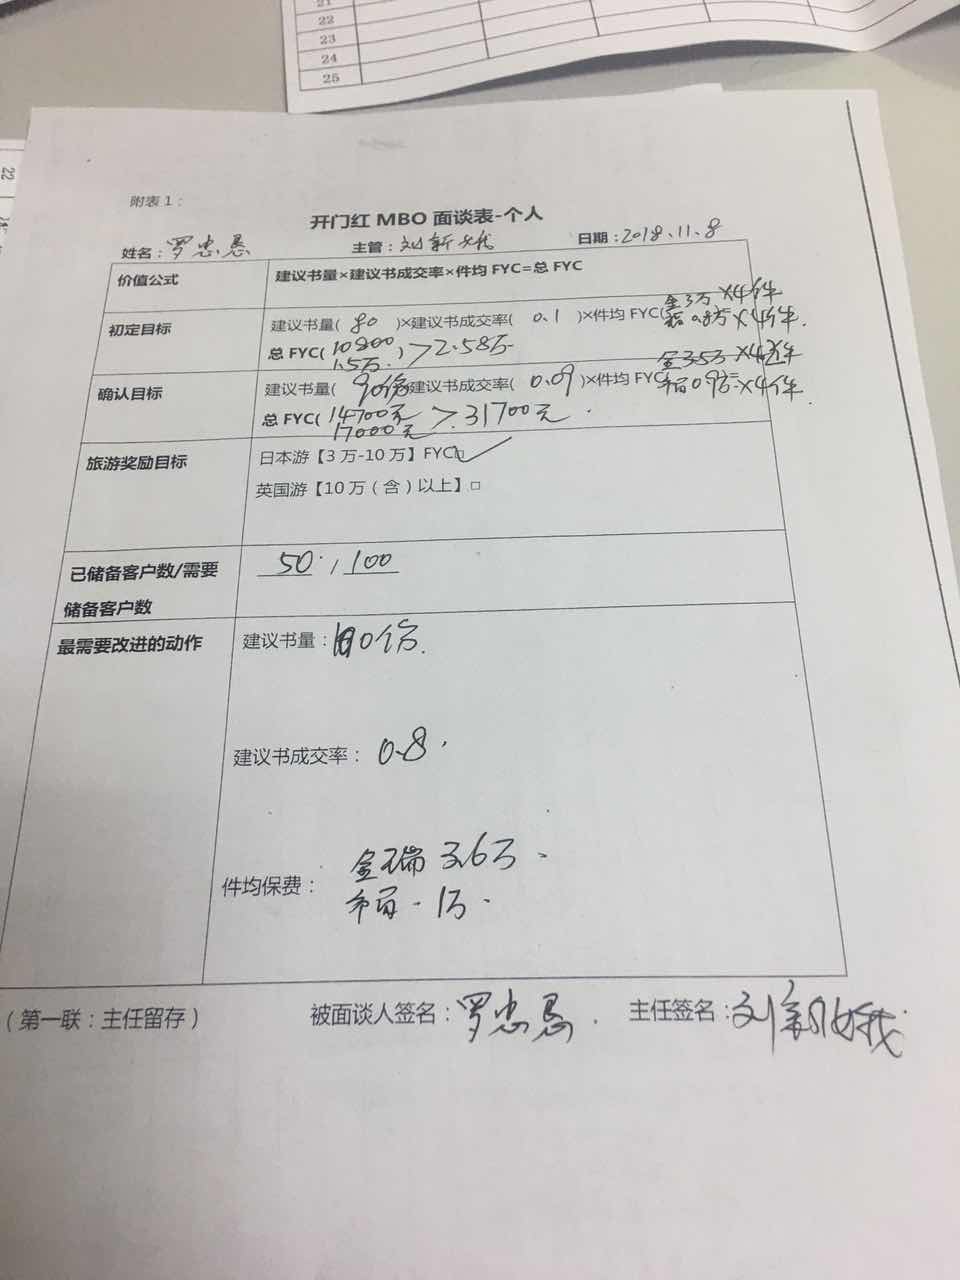 21
22
23
24
25
22
附表1：
开门红 MBO 面谈表-个人
姓名：罗忠恳 主管：刘新娥 日期：2018.11.8
价值公式 建议书量×建议书成交率×件均 FYC=总 FYC
初定目标 建议书量( 80 )×建议书成交率( 0.1 )×件均 FYC( 金3万×4件
0.8万×4件.
总 FYC( 10800
1.5万. ) >2.58万
确认目标 建议书量( 90份 建议书成交率( 0.09 )×件均 FYC 金3.5万×4件
福0.9万×4件.
总 FYC( 14700元
17000元 > 31700元.
旅游奖励目标 日本游【3万-10万】FYC□✓
英国游【10万（含）以上】□
已储备客户数/需要 50 / 100
储备客户数
最需要改进的动作 建议书量：100份.
建议书成交率： 0.8.
件均保费： 金瑞 3.6万.
福. 1万.
（第一联：主任留存） 被面谈人签名：罗忠恳. 主任签名：刘新娥